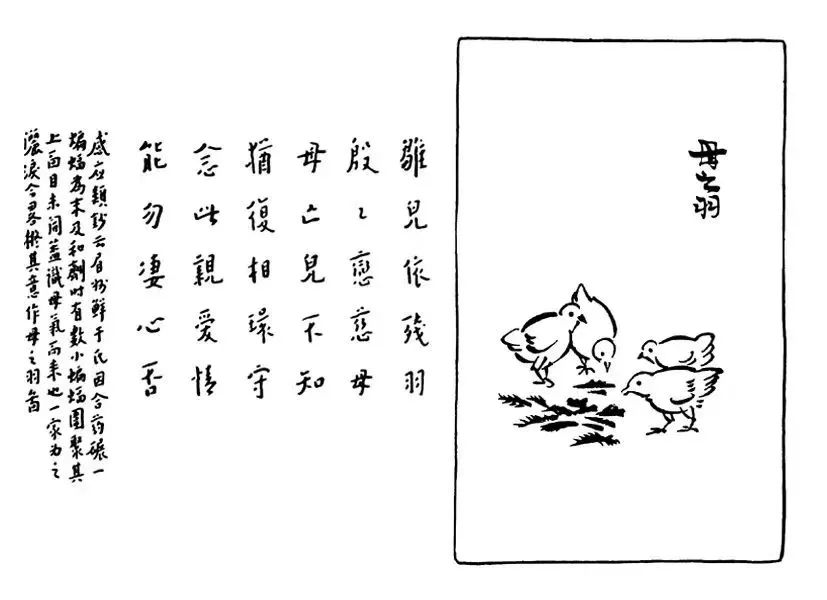 母之羽
雛兒依殘羽
殷〻戀慈母
母亡兒不知
猶復相環守
念此親愛情
能勿淒心否
感应類鈔云眉州鮮于氏因合药碾一
蝙蝠為末及和劑時有數小蝙蝠圍聚其
上面目未開蓋識母氣而来也一家为之
灑淚今畧擬其意作母之羽圖